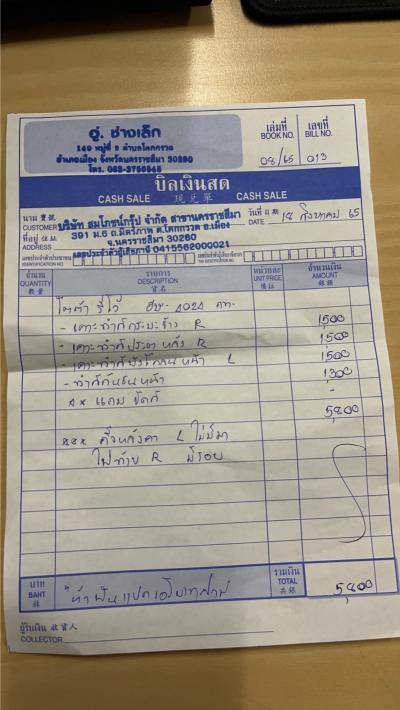 อู่ ช่างเล็ก
149 หมู่ที่ 8 ตำบลโคกกรวด
อำเภอเมือง จังหวัดนครราชสีมา 30280
โทร.
เล่มที่ เลขที่
BOOK NO. BILL NO.
08/65 013
บิลเงินสด
CASH SALE 現兌單 CASH SALE
นาม 寶號
CUSTOMER บริษัท สมโภชน์กรุ๊ป จำกัด สาขานครราชสีมา
วันที่ 日期
DATE 18 สิงหาคม 65
ที่อยู่ 住址
391 ม.6 ถ.มิตรภาพ ต.โคกกรวด อ.เมือง
จ.นครราชสีมา 30280
เลขประจำตัวผู้เสียภาษี 0415562000021
จำนวน รายการ หน่วยละ จำนวนเงิน
QUANTITY DESCRIPTION UNIT PRICE AMOUNT
數量 貨名 價註 銀額
โตต้า รีโว้
- เคาะทำสีกระบะข้าง R 1,500
- เคาะทำสีประตูหลัง R 1,500
- เคาะทำสีบังโคลนหน้า L 1,500
- ทำสีกันชนหน้า 1,300
** แถม ขัดสี -
5,800
*** คิ้วหลังคา L ไม่มีมา
ไฟท้าย R มีรอย
บาท
BAHT
銖
ห้าพันแปดร้อยบาทถ้วน
รวมเงิน
TOTAL
共銀
5,800
ผู้รับเงิน 收貨人
COLLECTOR